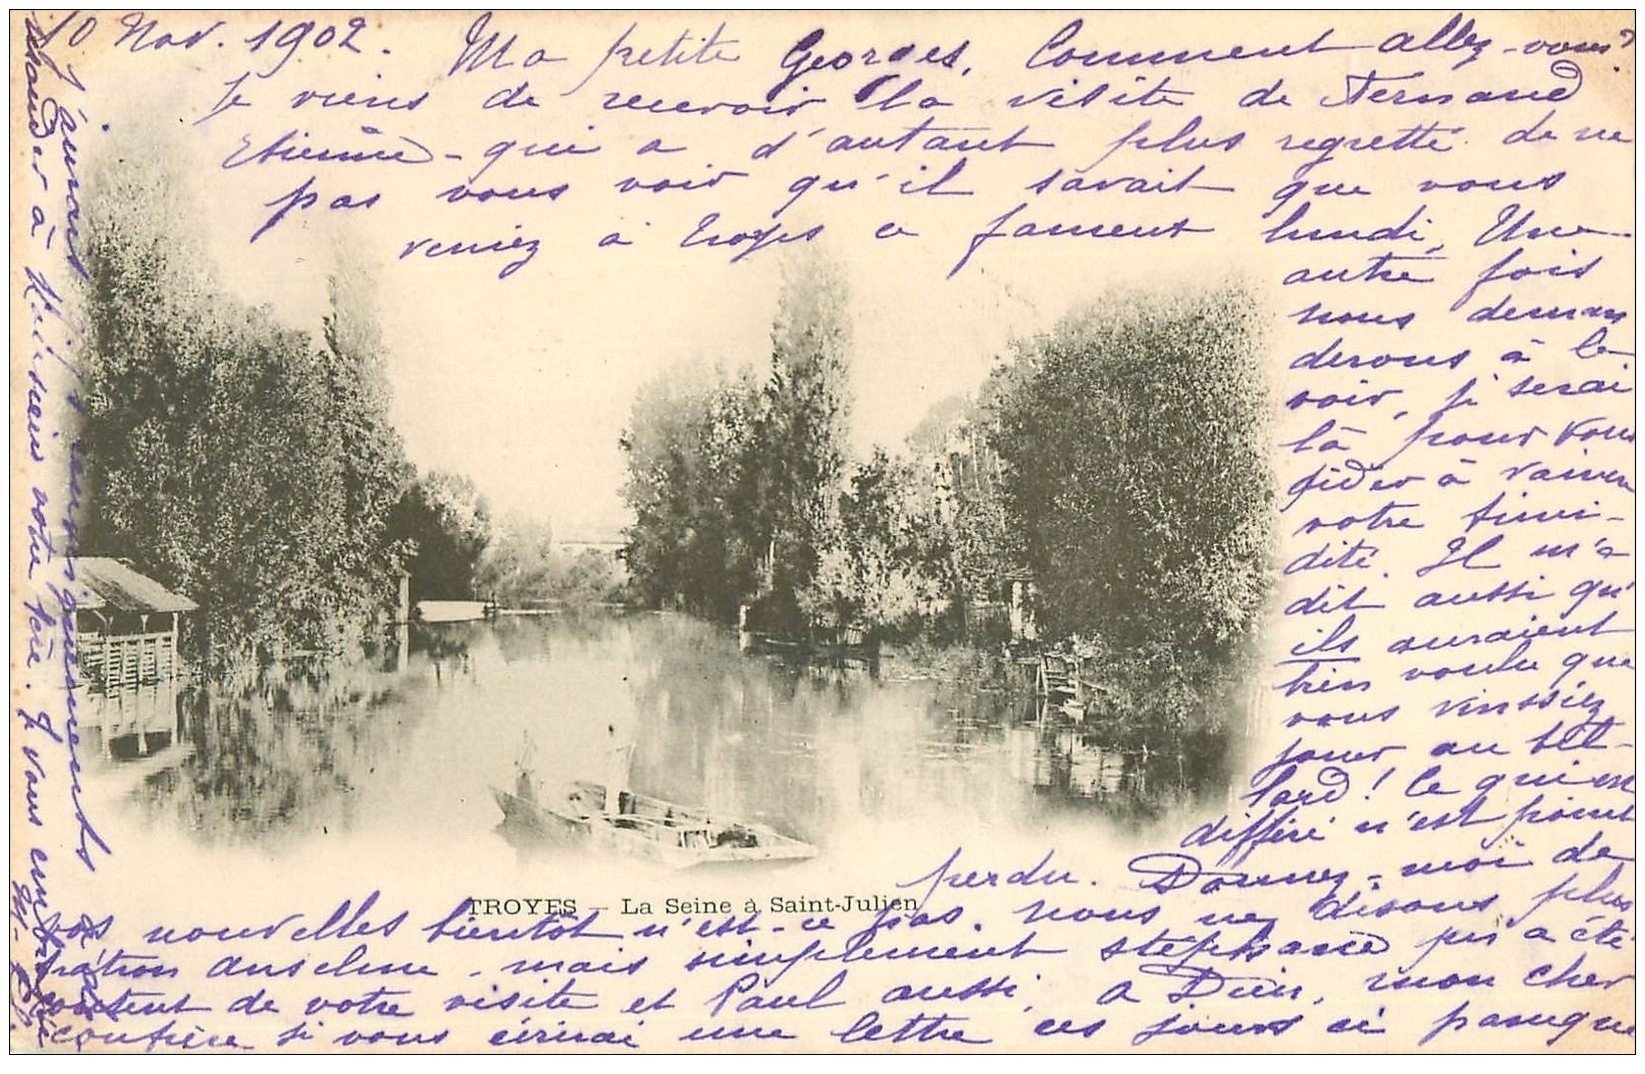 10 Nov. 1902.
Ma petite Georges, Comment allez-vous?
Je viens de recevoir la visite de Fernand
Etienne - qui a d'autant plus regretté de ne
pas vous voir qu'il savait que vous
veniez à Troyes ce fameux lundi, Une
autre fois
nous deman
derons à le
voir, je serai
là pour vous
aider à vaincre
votre timi-
dité. Il m'a
dit aussi qu'
ils auraient
bien voulu que
vous vinssiez
jouer au bil-
lard! Ce qui est
différé n'est point
perdu. Donnez-moi de
TROYES — La Seine à Saint-Julien
vos nouvelles bientôt n'est-ce pas. nous ne disons plus
Anselme, mais simplement Stéphane qui a été
content de votre visite et Paul aussi, à Dieu, mon cher
si vous écrirai une lettre ces jours ci
J'aurais renseignements
à votre frère. Je vous embrasse